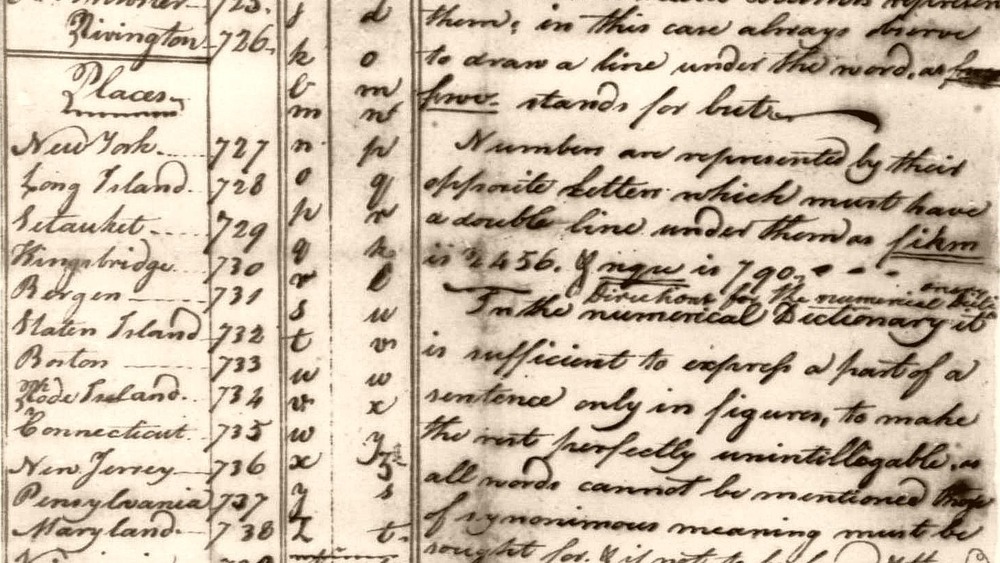 Rivington 726.
Places
New York 727
Long Island 728
Setauket 729
Kingsbridge 730
Bergen 731
Staten Island 732
Boston 733
Rode Island 734
Connecticut 735
New Jersey 736
Pensylvania 737
Maryland 738
j d
k o
l m
m n
n p
o q
p r
q k
r l
s u
t v
u w
v x
w y
x z
y s
z t.
them; in this case always observe
to draw a line under the word, as
fwv. stands for but
Numbers are represented by their
opposite Letters which must have
a double line under them as fikm
is 2456. & nqu is 790.
Directions for the numerical
In the numerical Dictionary it
is sufficient to express a part of a
sentence only in figures, to make
the rest perfectly unintillegable, as
all words cannot be mentioned those
of synonimous meaning must be
sought for. & if not to be